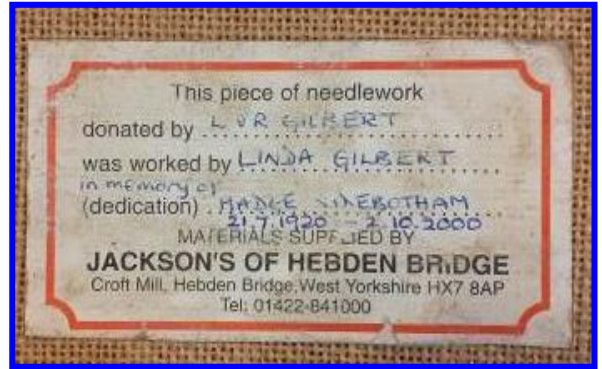 This piece of needlework
donated by L & R GILBERT
was worked by LINDA GILBERT
in memory of
(dedication) MADGE SIDEBOTHAM
21.7.1920 - 2.10.2000
MATERIALS SUPPLIED BY
JACKSON'S OF HEBDEN BRIDGE
Croft Mill, Hebden Bridge, West Yorkshire HX7 8AP
Tel: 01422-841000